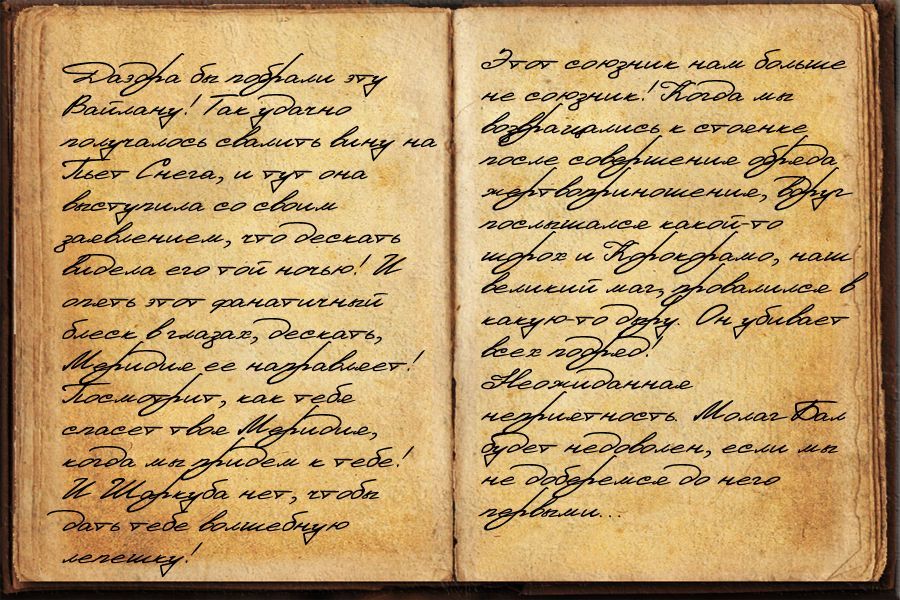 Даэдра бы побрали эту
Вайлану! Так удачно
получалось свалить вину на
Пьет Снега, и тут она
выступила со своим
заявлением, что дескать
видела его той ночью! И
опять этот фанатичный
блеск в глазах, дескать,
Меридия ее направляет!
Посмотрит, как тебе
спасет твоя Меридия,
когда мы придем к тебе!
И Шаркуба нет, чтобы
дать тебе волшебную
лепешку!
Этот союзник нам больше
не союзник! Когда мы
возвращались к стоенке
после совершения обряда
жертвоприношения, вдруг
послышался какой-то
шорох и Корокорамо, наш
великий маг, провалился в
какую-то дыру. Он убивает
всех подряд!
Неожиданная
неприятность. Молаг Бал
будет недоволен, если мы
не доберемся до него
первыми...